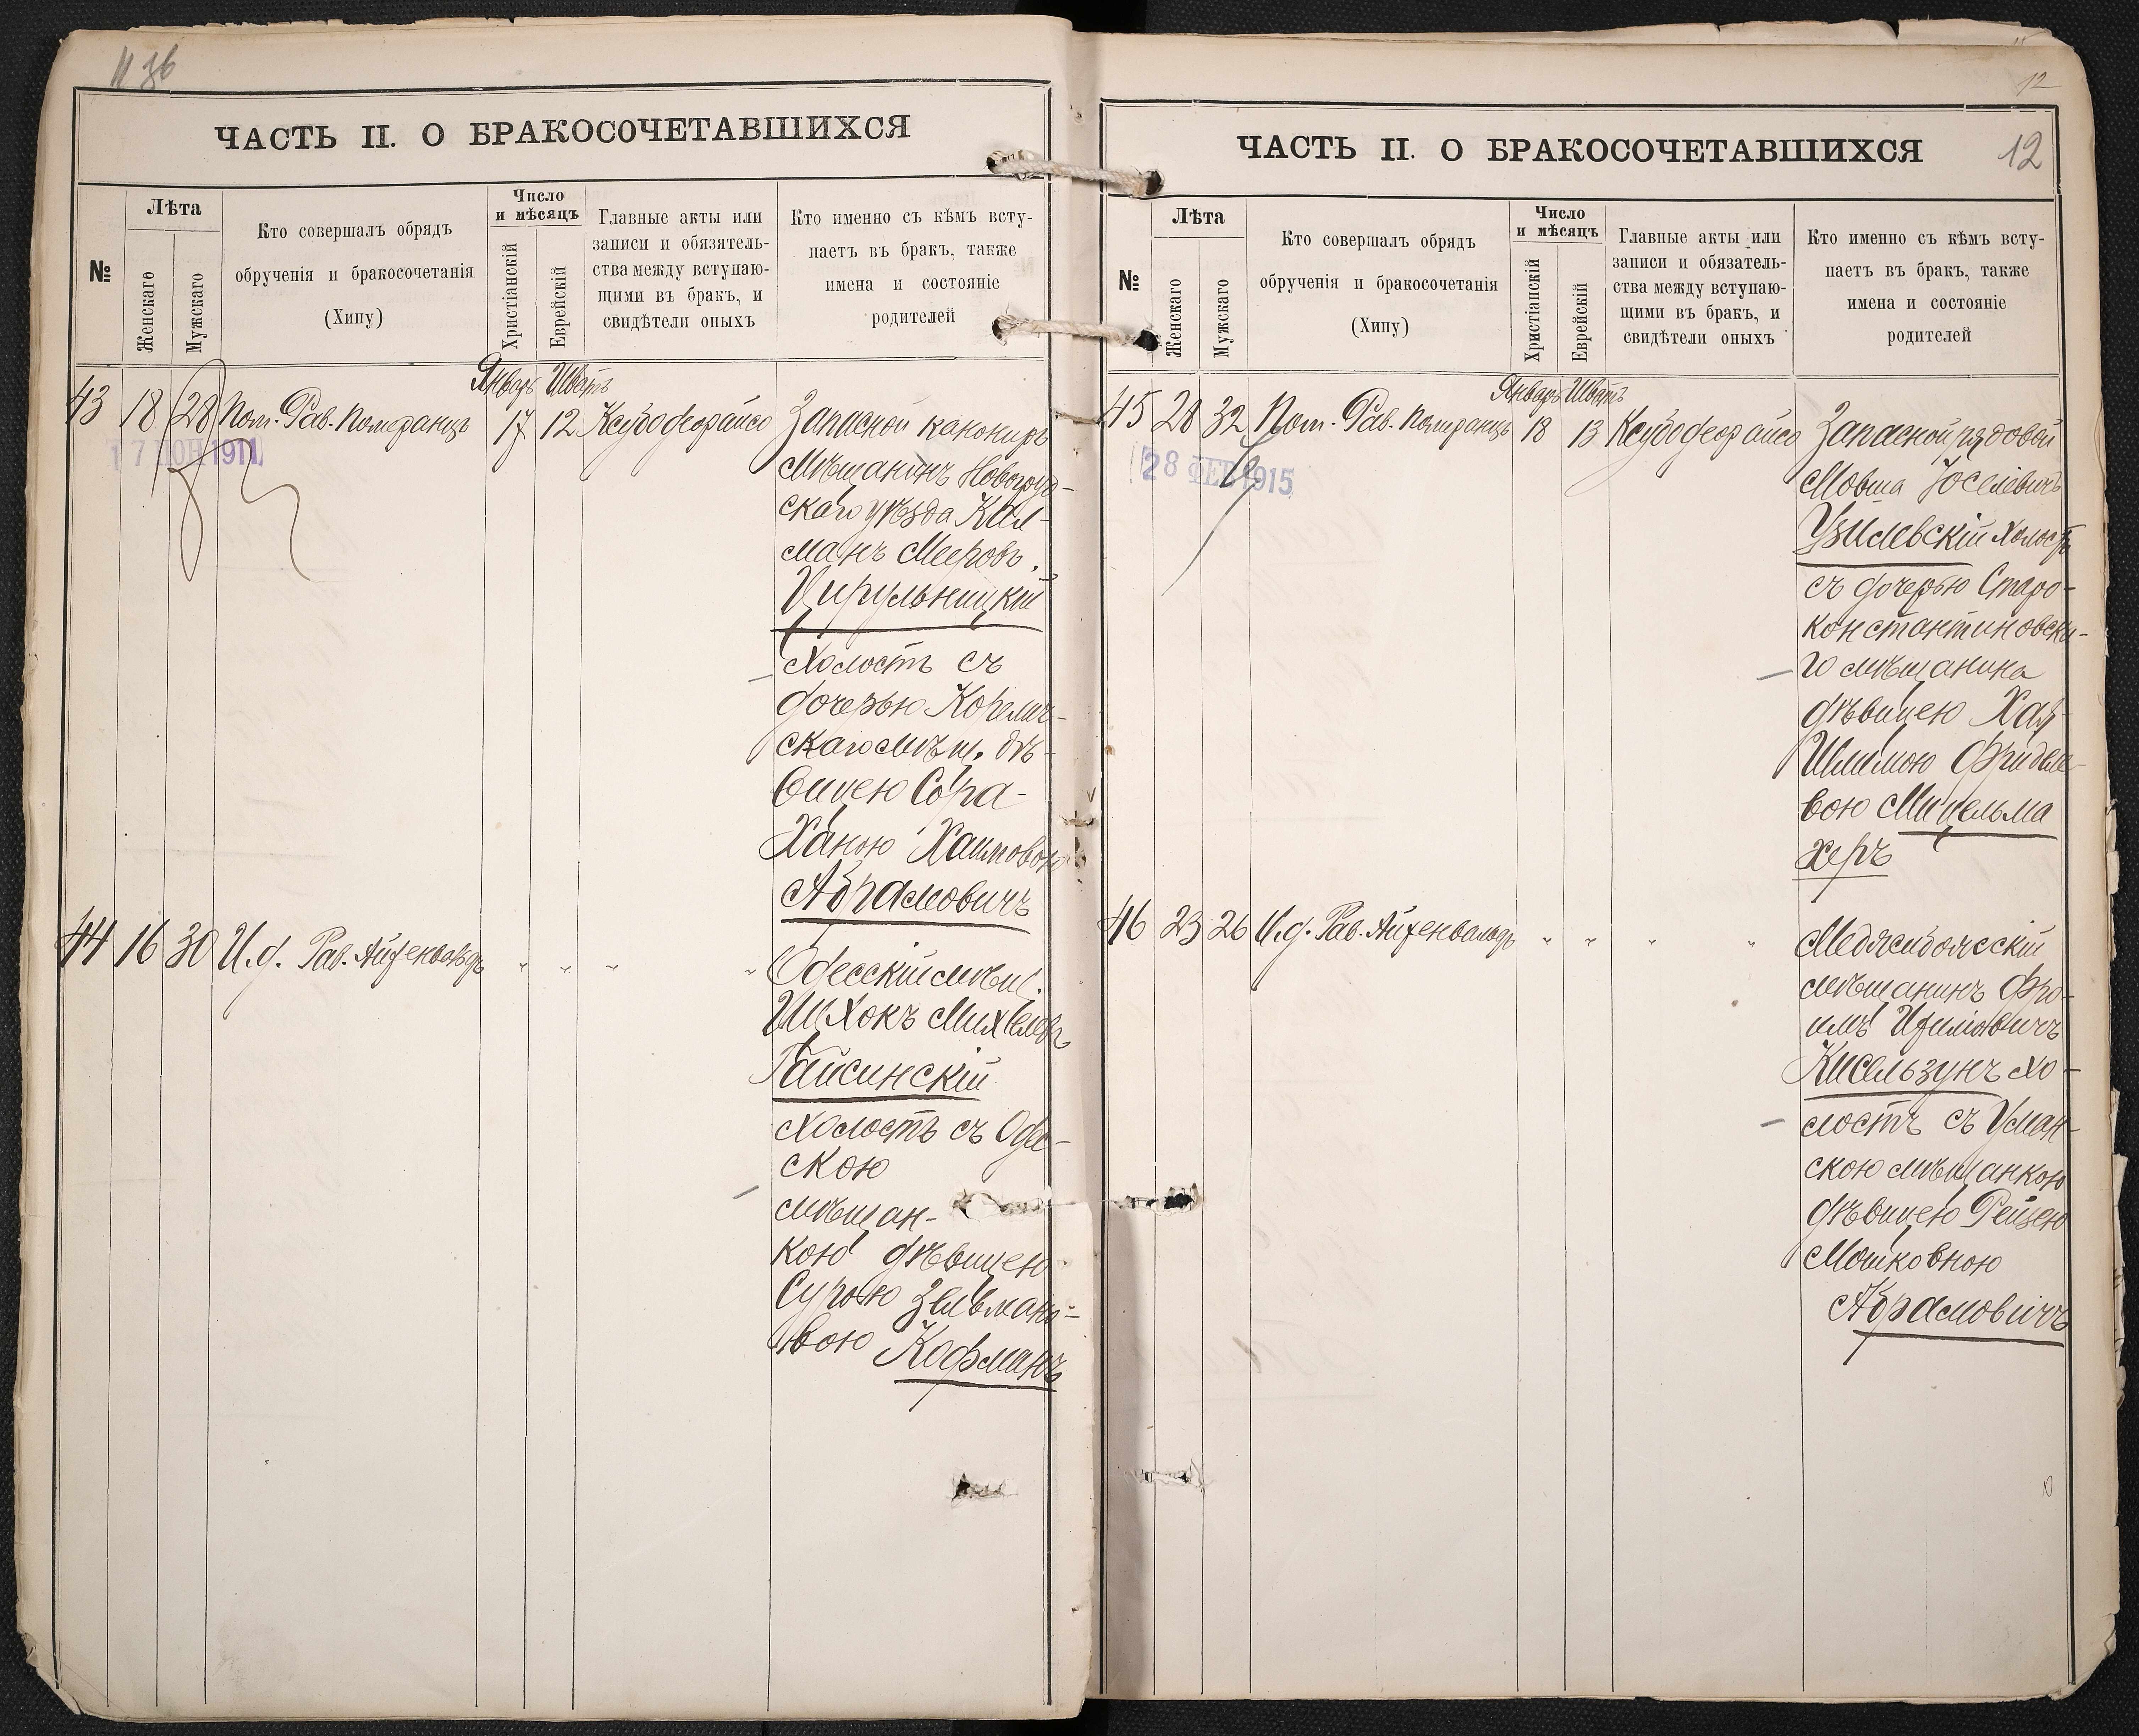 ЧАСТЬ II. О БРАКОСОЧЕТАВШИХСЯ
№
Лѣта
Женскаго
Мужскаго
Кто совершалъ обрядъ
обрученія и бракосочетанія
(Хипу)
Число
и мѣсяцъ
Христіанскій
Еврейскій
Главные акты или
записи и обязятель-
ства между вступаю-
щими въ бракъ, и
свидѣтели оныхъ
Кто именно съ кѣмъ всту-
паетъ въ бракъ, также
имена и состояніе
родителей
Январь Шватъ
43 18 28 Пом. Рав. Померанцъ 17 12
17 ІЮН 1911
Запасной канониръ
мѣщанинъ Новогруд-
скаго уѣзда Кал-
манъ Мееровъ
Цирульницкій
холостъ съ
дочерью Корелич-
скаго мѣщ. дѣ-
вицею Сора-
Ханою Хаимовою
Абрамовичъ
44 16 30 И.д. Рав. Айхенвальдъ " " " "
Одесскій мѣщ.
Ицхокъ Михелевъ
Гайсинскій
холостъ съ Одес-
скою
мѣщан-
кою дѣвицею
Сурою Зельмано-
вою Кофманъ
12
ЧАСТЬ II. О БРАКОСОЧЕТАВШИХСЯ 12
№
Лѣта
Женскаго
Мужскаго
Кто совершалъ обрядъ
обрученія и бракосочетанія
(Хипу)
Число
и мѣсяцъ
Христіанскій
Еврейскій
Главные акты или
записи и обязатель-
ства между вступаю-
щими въ бракъ, и
свидѣтели оныхъ
Кто именно съ кѣмъ всту-
паетъ въ бракъ, также
имена и состояніе
родителей
Январь Шватъ
45 28 32 Пом. Рав. Померанцъ 18 13
28 ФЕВ 1915
Запасной рядовой
Мовша Іоселевичъ
Узилевскій холостъ
съ дочерью Старо-
константиновска-
го мѣщанина
дѣвицею Хая
Фриделе-
вою Мицельма
херъ
46 23 26 И.д. Рав. Айхенвальдъ " " " "
Меджибожсскій
мѣщанинъ Фро-
имъ
Кисельзунъ хо-
лостъ съ Уман-
скою мѣщанкою
дѣвицею Рейзею
Мошковною
Абрамовичъ